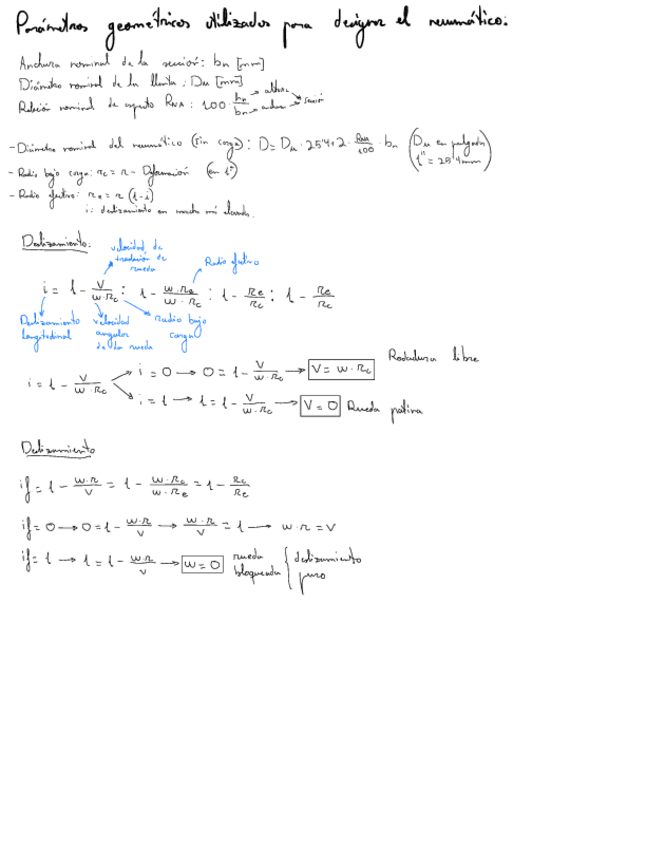 Parámetros geométricos utilizados para designar el neumático:
Anchura nominal de la sección: bn [mm]
Diámetro nominal de la llanta: Dn [mm]
Relación nominal de aspecto RNA: 100 · hn/bn → altura → sección → anchura
- Diámetro nominal del neumático (sin carga): D = Dn · 25'4 + 2 · RNA/100 · bn (Dn en pulgadas 1" = 25'4mm)
- Radio bajo carga: rc = r - Deformación
- Radio efectivo: re = r (1-i)
i: deslizamiento en
Deslizamiento:
velocidad de traslación de rueda
Radio efectivo
i = 1 - V/w·Rc : 1 - w·Re/w·Rc : 1 - Re/Rc : 1 - Re/Rc
Deslizamiento longitudinal
velocidad angular de la rueda
radio bajo carga
i = 1 - V/w·Rc → i = 0 → 0 = 1 - V/w·Rc → V = w·Rc Rodadura libre
→ i = 1 → 1 = 1 - V/w·Rc → V = 0 Rueda patina
Deslizamiento
if = 1 - w·r/V = 1 - w·Rc/w·Re = 1 - Rc/Re
if = 0 → 0 = 1 - w·r/V → w·r/V = 1 → w·r = V
if = 1 → 1 = 1 - w·r/V → w = 0 rueda bloqueada { deslizamiento puro